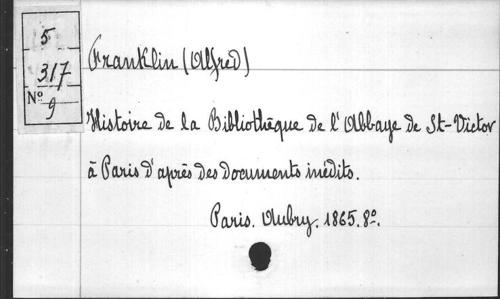 5
317
Nº 9
Franklin (Alfred)
Histoire de la Bibliothèque de l'Abbaye de St-Victor
à Paris d'après des documents inédits.
Paris. Aubry. 1865. 8º.